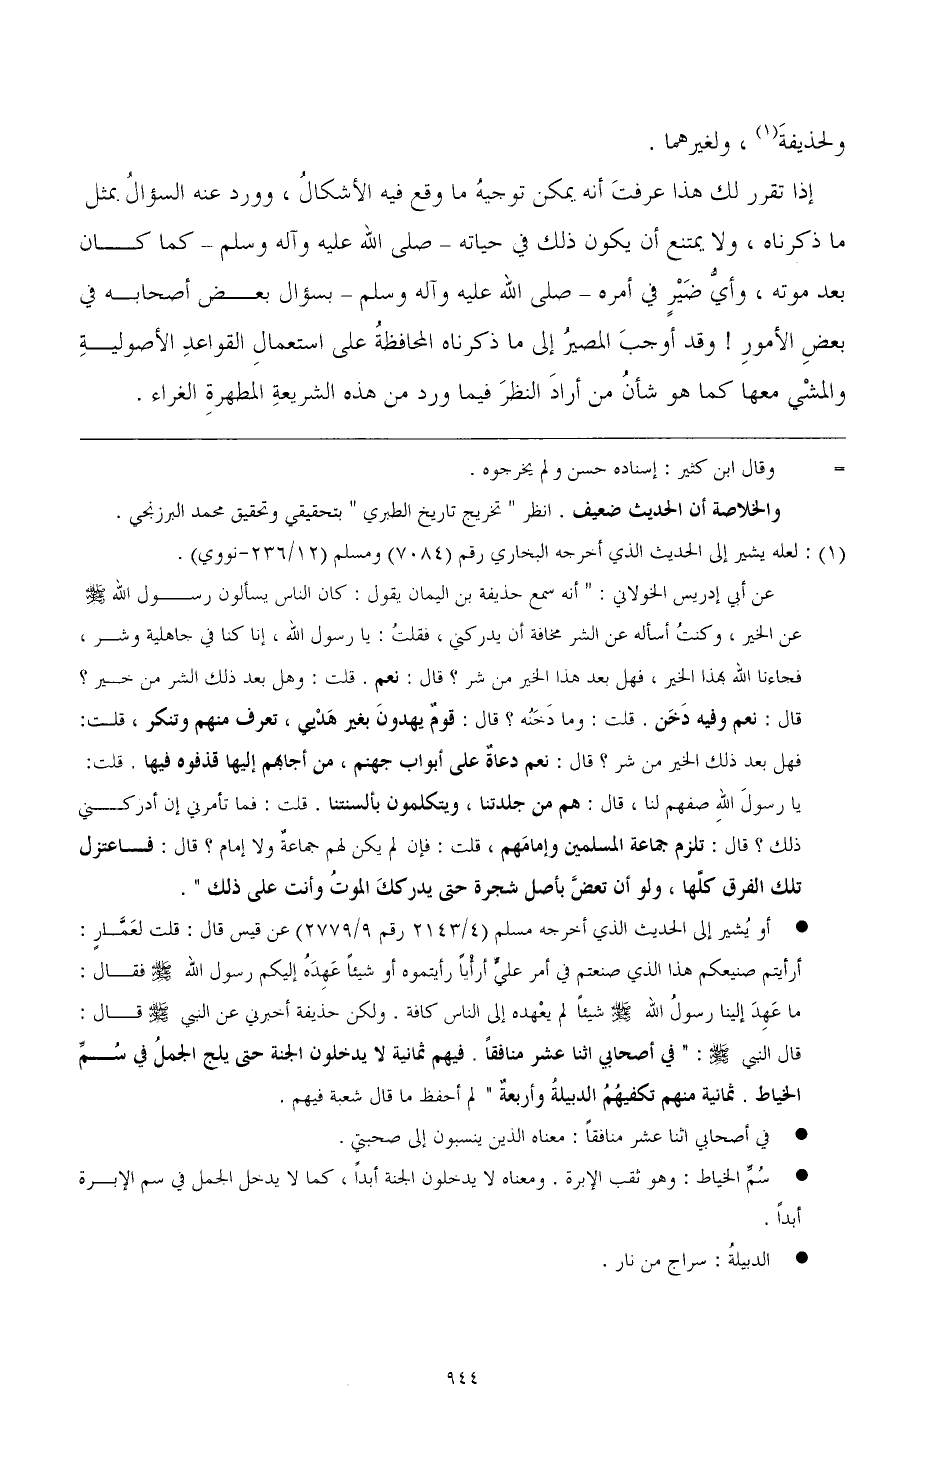 ولحذيفةَ(١) ، ولغيرهما .
إذا تقرر لك هذا عرفتَ أنه يمكن توجيهُ ما وقع فيه الأشكالُ ، وورد عنه السؤالُ بمثل
ما ذكرناه ، ولا يمتنع أن يكون ذلك في حياته – صلى الله عليه وآله وسلم – كما كـــان
بعد موته ، وأيُّ ضَيْرٍ في أمره – صلى الله عليه وآله وسلم – بسؤال بعــض أصحابــه في
بعضِ الأمورِ ! وقد أوجبَ المصيرُ إلى ما ذكرناه المحافظةُ على استعمالِ القواعدِ الأصوليــةِ
والمشْي معها كما هو شأنُ من أرادَ النظرَ فيما ورد من هذه الشريعةِ المطهرةِ الغراء .
= وقال ابن كثير : إسناده حسن و لم يخرجوه .
والخلاصة أن الحديث ضعيف . انظر " تخريج تاريخ الطبري " بتحقيقي وتحقيق محمد البرزنجي .
(١) : لعله يشير إلى الحديث الذي أخرجه البخاري رقم (٧٠٨٤) ومسلم (٢٣٦/١٢-نووي) .
عن أبي إدريس الخولاني : " أنه سمع حذيفة بن اليمان يقول : كان الناس يسألون رســـول الله ﷺ
عن الخير ، وكنتُ أسأله عن الشر مخافة أن يدركني ، فقلتُ : يا رسول الله ، إنا كنا في جاهلية وشــر ،
فجاءنا اللهُ بهذا الخير ، فهل بعد هذا الخير من شر ؟ قال : نعم . قلت : وهل بعد ذلك الشر من خــير ؟
قال : نعم وفيه دَخَن . قلت : وما دَخَنُه ؟ قال : قومٌ يهدونَ بغير هَدْيي ، تعرف منهم وتنكر ، قلــت:
فهل بعد ذلك الخير من شر ؟ قال : نعم دعاةٌ على أبواب جهنم ، من أجابهم إليها قذفوه فيها . قلت:
يا رسولَ اللهِ صفهم لنا ، قال : هم من جلدتنا ، ويتكلمون بألسنتنا . قلت : فما تأمرني إن أدركـــني
ذلك ؟ قال : تلزم جماعة المسلمين وإمامَهم ، قلت : فإن لم يكن لهم جماعةٌ ولا إمام ؟ قال : فـــاعتزل
تلك الفرق كلَّها ، ولو أن تعضَّ بأصل شجرة حتى يدركك الموتُ وأنت على ذلك " .
● أو يُشير إلى الحديث الذي أخرجه مسلم (٢١٤٣/٤ رقم ٢٧٧٩/٩) عن قيس قال : قلت لعَمَّــارٍ :
أرأيتم صنيعكم هذا الذي صنعتم في أمر عليٍّ أرأْياً رأيتموه أو شيئاً عَهِدَهُ إليكم رسول الله ﷺ فقــال :
ما عَهِدَ إلينا رسولُ الله ﷺ شيئاً لم يعْهده إلى الناس كافة . ولكن حذيفة أخبرني عن النبي ﷺ قـــال :
قال النبي ﷺ : " في أصحابي اثنا عشر منافقاً . فيهم ثمانية لا يدخلون الجنة حتى يلج الجملُ في سُـــمِّ
الخياط . ثمانية منهم تكفيهُمُ الدبيلةُ وأربعةٌ " لم أحفظ ما قال شعبة فيهم .
● في أصحابي اثنا عشر منافقاً : معناه الذين ينسبون إلى صحبتي .
● سُمِّ الخياط : وهو ثقب الإبرة . ومعناه لا يدخلون الجنة أبداً ، كما لا يدخل الجمل في سم الإبــرة
أبداً .
● الدبيلةُ : سراج من نار .
٩٤٤